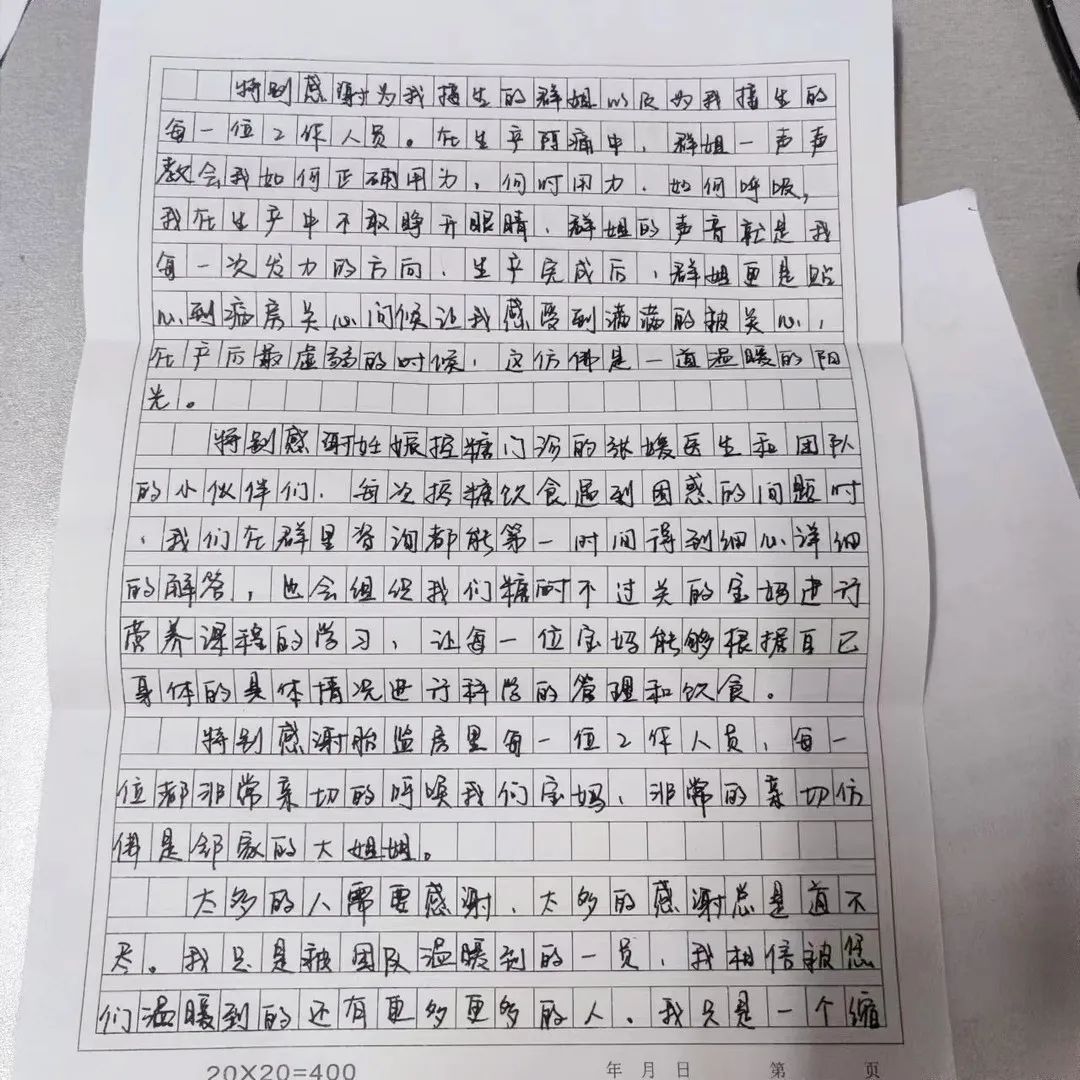 特别感谢为我接生的群姐以及为我接生的
每一位工作人员。在生产阵痛中，群姐一声声
教会我如何正确用力，何时用力，如何呼吸，
我在生产中不敢睁开眼睛，群姐的声音就是我
每一次发力的方向，生产完成后，群姐更是贴
心到病房关心问候让我感受到满满的被关心，
在产后最虚弱的时候，这仿佛是一道温暖的阳
光。
特别感谢妊娠控糖门诊的张媛医生和团队
的小伙伴们，每次控糖饮食遇到困惑的问题时
，我们在群里咨询都能第一时间得到细心详细
的解答，也会组织我们糖耐不过关的宝妈进行
营养课程的学习，让每一位宝妈能够根据自己
身体的具体情况进行科学的管理和饮食。
特别感谢胎监房里每一位工作人员，每一
位都非常亲切的呼唤我们宝妈，非常的亲切仿
佛是邻家的大姐姐。
太多的人需要感谢，太多的感谢总是道不
尽。我只是被团队温暖到的一员，我相信被您
们温暖到的还有更多更多的人。我只是一个缩
20X20=400
年 月 日 第 页